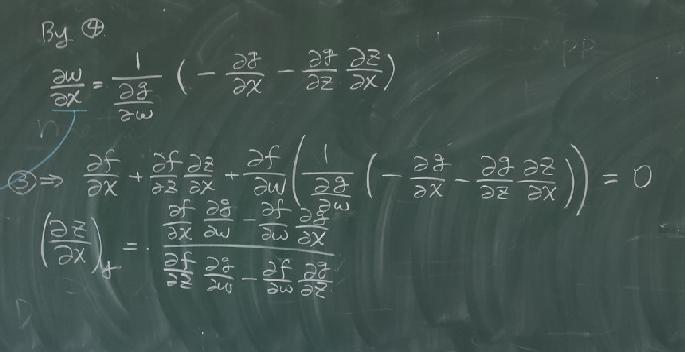 By ④
∂w/∂x = 1/(∂g/∂w) (- ∂g/∂x - ∂g/∂z ∂z/∂x)
③ ⇒ ∂f/∂x + ∂f/∂z ∂z/∂x + ∂f/∂w (1/(∂g/∂w) (- ∂g/∂x - ∂g/∂z ∂z/∂x)) = 0
(∂z/∂x)_y = - (∂f/∂x ∂g/∂w - ∂f/∂w ∂g/∂x)/(∂f/∂z ∂g/∂w - ∂f/∂w ∂g/∂z)